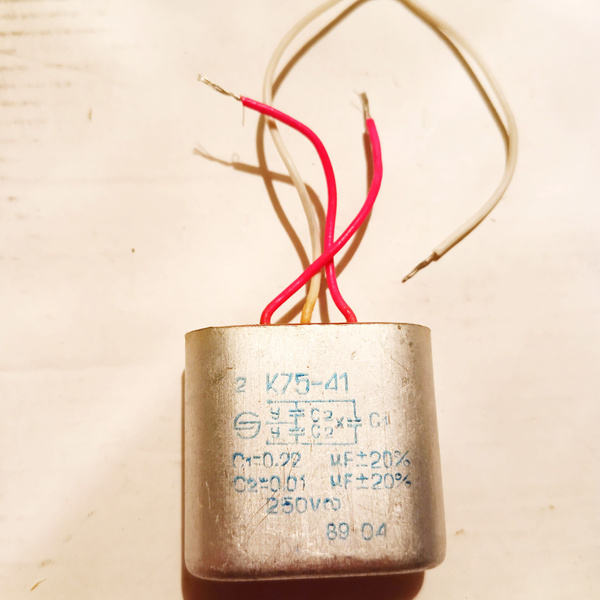 2 K75-41
У C2
У C2 X C1
C1=0.22 µF±20%
C2=0.01 µF±20%
250V∾
89 04